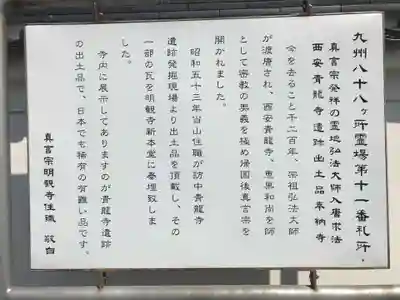 九州八十八ヶ所霊場第十一番札所・
真言宗発祥の霊地弘法大師入唐求法
西安青龍寺遺跡出土品奉納寺
今を去ること千二百年、宗祖弘法大師
が渡唐され、西安青龍寺、恵果和尚を師
として密教の奥義を極め帰国後真言宗を
開かれました。
昭和五十三年当山住職が訪中青龍寺
遺跡発掘現場より出土品を頂戴し、その
一部の瓦を明観寺新本堂に奉埋致しま
した。
寺内に展示してありますのが青龍寺遺跡
の出土品で、日本でも稀有の有難い品です。
真言宗明観寺住職 敬白